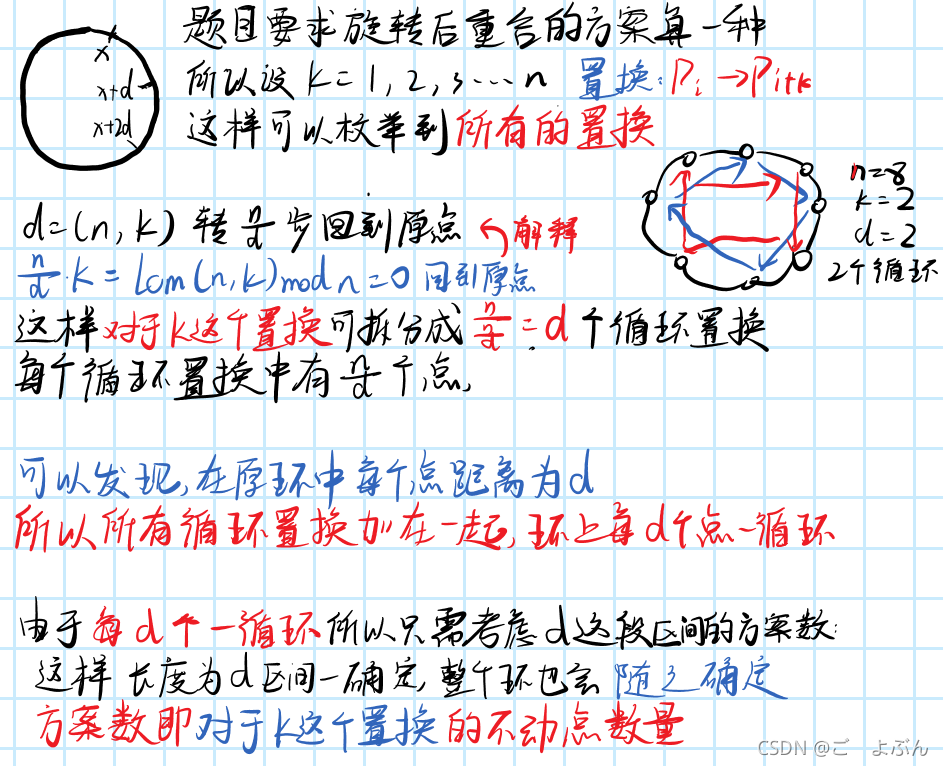 题目要求旋转后重合的方案算一种
x
x+d
x+2d
所以设 k=1,2,3…n 置换:Pi→Pi+k
这样可以枚举到所有的置换
n=8
k=2
d=2
2个循环
d=(n,k) 转 n/d 步回到原点 解释
n/d·k=Lcm(n,k) mod n=0 回到原点
这样对于k这个置换可拆分成 n/(n/d)=d 个循环置换
每个循环置换中有 n/d 个点,
可以发现,在原环中每个点距离为d
所以所有循环置换加在一起,环上每d个点一循环
由于每d个一循环所以只需考虑d这段区间的方案数:
这样长度为d区间一确定,整个环也会随之确定
方案数即对于k这个置换的不动点数量
CSDN @ご よぶん